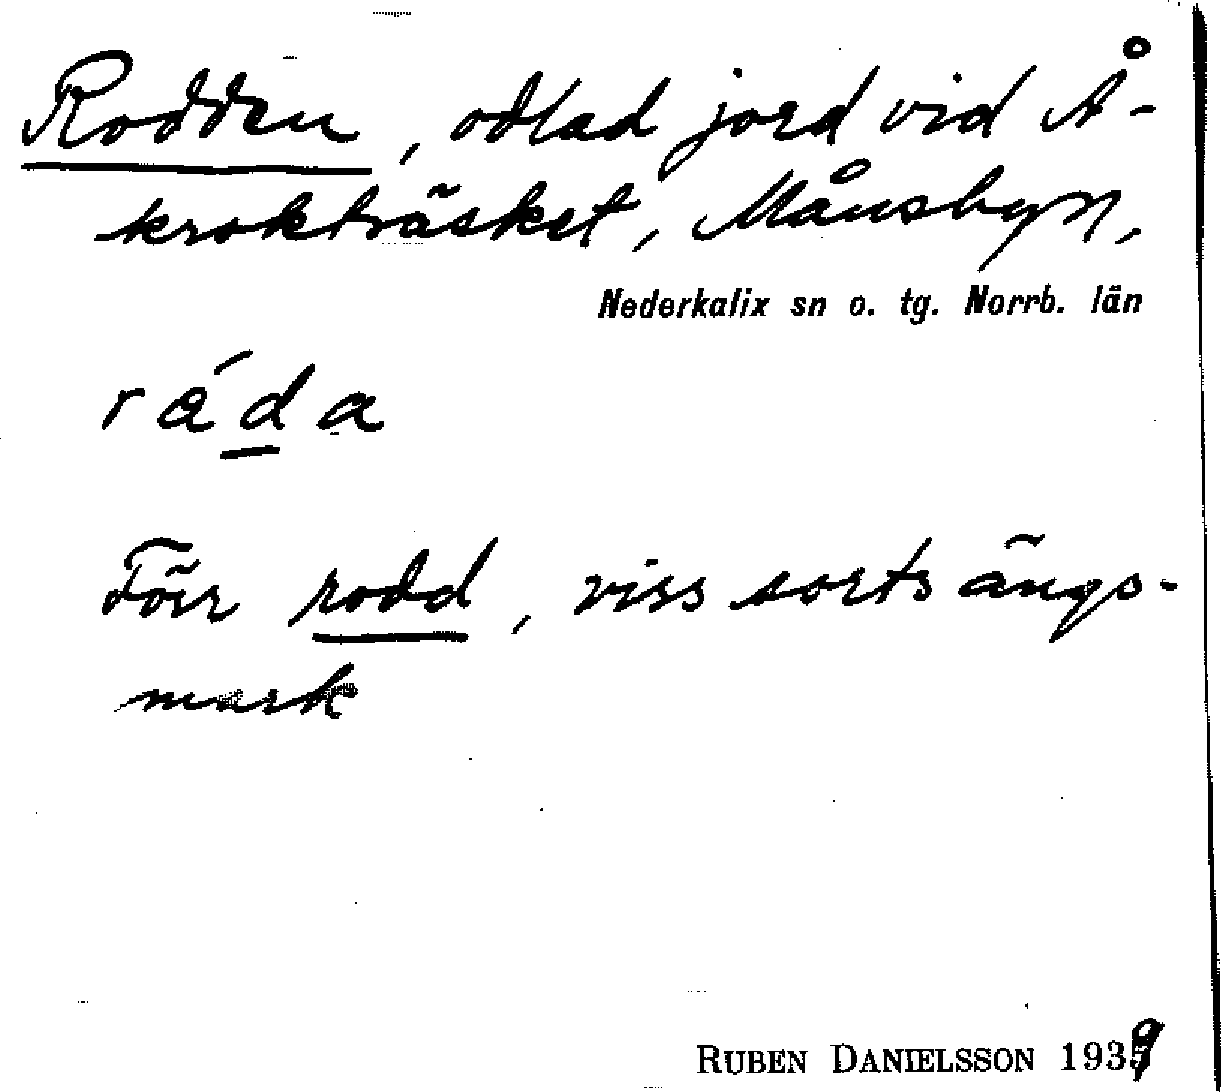 Rodden, odlad jord vid Å-
krokträsket, Månsbyn,
Nederkalix sn o. tg. Norrb. län
ráda
Förr rodd, viss sorts ängs-
mark
RUBEN DANIELSSON 1939